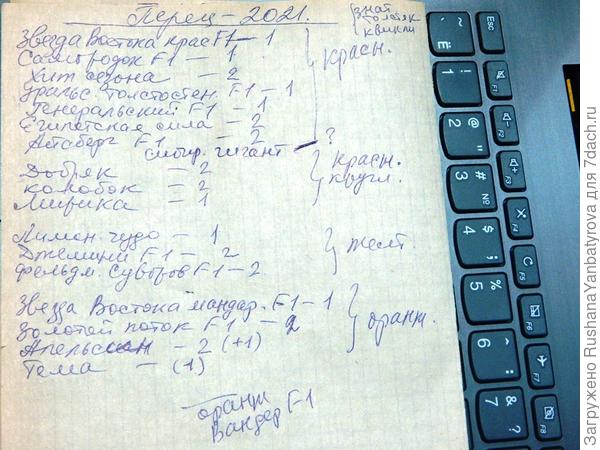 Перец - 2021.
знат
толстяк
квикли
Звезда Востока крас F1 - 1
Самородок F1 - 1
Хит сезона - 2
Уральс. толстостен. F1 - 1
Генеральский F1 - 1
Египетская сила - 2
Айсберг F1 - 2
сибир. гигант - ?
красн.
Добряк - 2
колобок - 2
Лирика - 1
красн.
кругл.
Лимон. чудо - 1
Джемини F1 - 2
Фельдм. Суворов F1 - 2.
желт.
Звезда Востока мандар. F1 - 1
Золотой поток F1 - 2
Апельсин - 2 (+1)
Тема - (1)
оранж.
оранж
Вандер F1
Esc
F1
F2
F3
F4
F5
F6
F7
F8
~ Ё
! 1
@ " 2
# № 3
$ ; 4
% 5
^ : 6
& ? 7
Загружено RushanaYanbatyrova для 7dach.ru